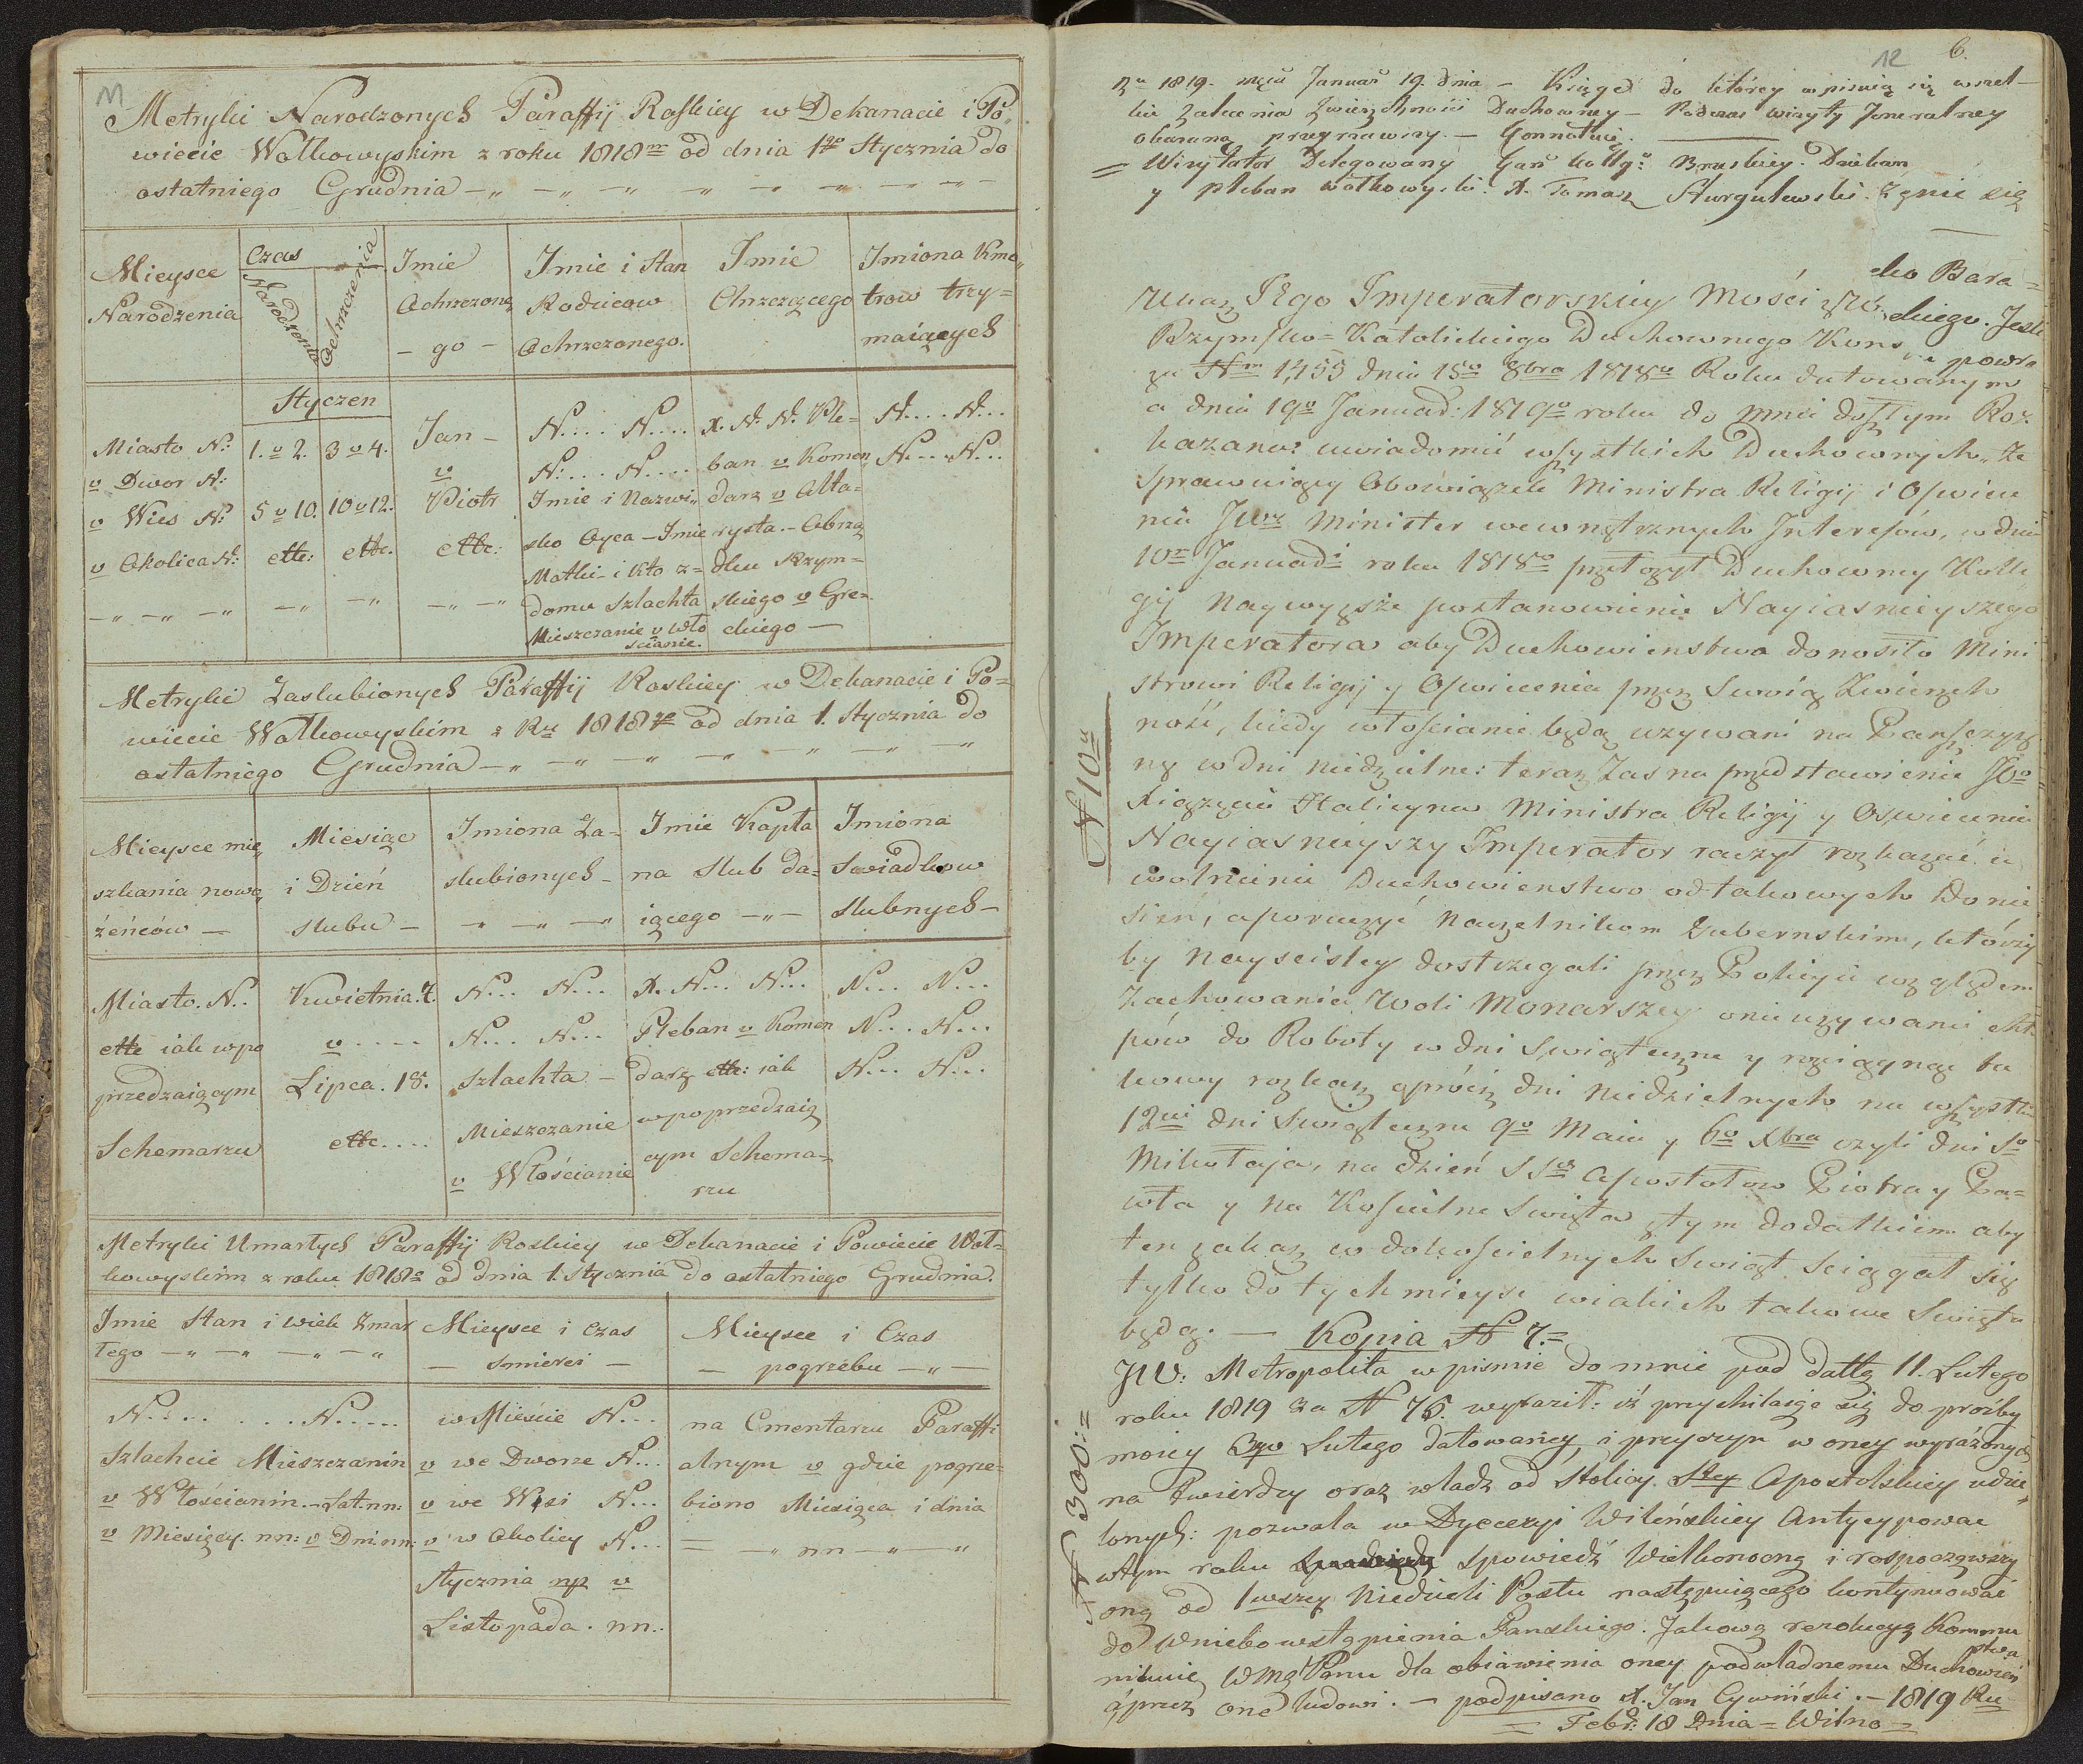 M
Metryki Narodzonych Paraffij Roskiey w Dekanacie i Po„
wiecie Wołkowyskim z roku 1818m od dnia 1go Stycznia do
ostatniego Grudnia
Mieysce
Narodzenia
Czas
Narodzenia
Ochrzczenia
Imie
Ochrzczone
- go -
Imie i stan
Rodzicow
Ochrzczonego.
Imie
Chrzczącego
Imiona Kmo„
trow trzy=
maiących
Styczen
Miasto N:
v Dwor N:
v Wies N:
v Okolica N:
1. v 2.
5 v 10.
ettc:
3 v 4.
10 v 12.
ettc.
Jan -
v
Piotr
ettc:
N.... N....
N.... N....
Imie i Nazwi„
sko Oyca - Imie
Matki - i kto z=
domu szlachta
Mieszczanie v Wło
scianie.
X. N. N. Ple=
ban v Komen„
darz v Alta=
rysta. - Obrzą
dku Rzym=
skiego v Gre=
ckiego —
N.... N...
N... N...
Metryki Zaslubionych Paraffij Roskiey w Dekanacie i Po=
wiecie Wołkowyskim z Ru 1818 od dnia 1. Stycznia do
ostatniego Grudnia
Mieysce mie„
szkania nowo„
żeńców —
Miesiąc
i Dzień
slubu -
Imiona Za=
slubionych -
Imie Kapła
na slub da=
iącego
Imiona
Swiadkow
slubnych -
Miasto. N..
ettc iak wpo
przedzaiącym
Schemarzu
Kwietnia. 7.
v ....
Lipca. 18.
ettc....
N... N...
N... N...
Szlachta -
Mieszczanie
v Włościanie
X. N... N...
Pleban v Komen
darz ettc: iak
wpoprzedzaią
cym Schema=
rzu
N... N...
N... N...
N... N...
Metryki Umarłych Paraffij Roskiey w Dekanacie i Powiecie Woł=
kowyskim z roku 1818o od dnia 1. stycznia do ostatniego Grudnia.
Imie stan i wiek Zmar
łego
Mieysce i Czas
— smierci —
Mieysce i Czas
— pogrzebu —
N.... ...N.....
Szlachcic Mieszczanin
v Włościanin. - Lat. nn:
v Miesięcy. nn: v Dni nn:
w Mieście N...
v we Dworze N...
v we Wsi N...
v w Okolicy N...
Stycznia np v
Listopada. nn..
na Cmentarzu Paraffi
alnym v gdzie pogrze=
biono Miesiąca i dnia
nn
12 6.
Ru 1819. Januar 19. dnia - Księga do którey wpisuią się wszel=
kie Zalecenia Zwierzchności Duchowney - Podczas wizyty Jeneralney
= Wizytator Delegowany Dziekan
y pleban wołkowyski. X. Tomasz
Ukaz Jego Imperatorskiey Mości
Rzymsko=Katolickiego Duchownego
za Nm 1,455 dnia 15o 8bra 1818o Roku datowanym
a dnia 19o Januar: 1819o roku do mnie doszłym Roz
kazano: uwiadomić wszystkich Duchownych, Ze
Sprawuiący Obowiązek Ministra Religij i Oswiece
nia Minister wewnętrznych Interesów, w dniu
10 roku 1818o przełożył Duchowney Kolle
gij naywyższe postanowienie Nayiasnieyszego
Imperatora aby Duchowienstwo donosiło Mini
strowi Religij y Oswiecenia przez Swoią Zwierzch
ność, kiedy włościanie będą uzywani na Panszczyz
nę w dni niedzielne: teraz Zas na przedstawienie JO
Xiążęcia Halicyna Ministra Religij y Oświecenia
Nayiasnieyszy Imperator raczył rozkazać u
wolnienie Duchowienstwo od takowych donie
sień, a poruczyć naczelnikom Gubernskim, którzy
by nayscisley dostrzegali przez Policyią względem
Zachowania Woli Monarszey o nieuzywaniu chło
pów do Roboty w dni swiąteczne y rozciągnąć ta
kowy rozkaz oprócz dni niedzielnych na wszystkie
12cie dni swiąteczne 9o Maia y 6o Xbra czyli dni So
Mikołaja, na dzień SSw Apostołow Piotra y Pa=
wła y na Koscielne Swięta z tym dodatkiem aby
ten zakaz w do koscielnych Swiąt sciągał się
tylko do tych mieysc w iakich takowe Swięta
będą. — Kopia N 7. =
N 10u
JW: Metropolita w pismie do mnie pod dattą 11. Lutego
roku 1819 za N 76. wyraził: iż przychilaiąc się do proźby
moiey 3go Lutego datowaney, i przyczyn w oney wyrażonych
na twierdzy oraz władz od stolicy Stey Apostolskiey udzie„
lonych: pozwala w Dyecezyi Wileńskiey Antycypować
w tym roku spowiedź Wielkonocną i rospocząwszy
oną od 1wszey Niedzieli Postu następuiącego kontynuować
do Wniebowstąpienia Panskiego. Jakową rezolucyą Kommu
nikuię WMç Panu dla obiawienia oney podwładnemu Duchowień
stwu
a przez one ludowi. — podpisano X. Jan Cywiński. - 1819 Ru
= Febr: 18 Dnia = Wilno =
N 300. =